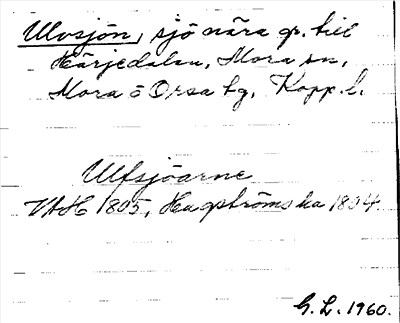 Ulvsjön, sjö nära gr. till
Härjedalen, Mora sn,
Mora o Orsa tg, Kopp. l.
Ulfsjöarne
VAH 1805, Hagströms ka 1804
G. L. 1960.